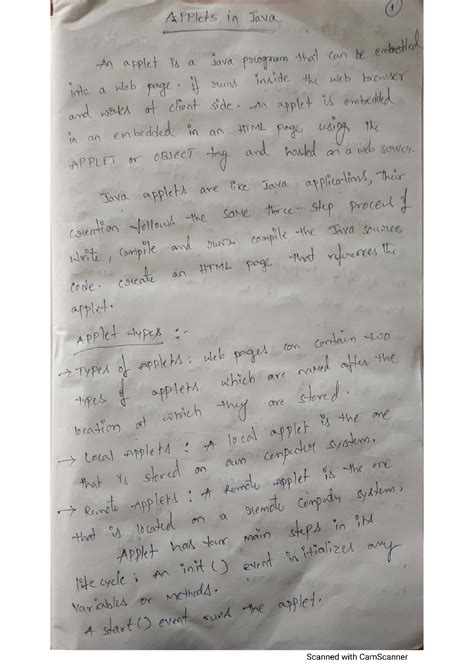 1
Applets in Java
An applet is a Java program that can be embedded
into a web page. if runs inside the web browser
and works at client side. An applet is embedded
in an embedded in an HTML page using the
APPLET or OBJECT tag and hosted on a web server.
Java applets are like Java applications, Their
creation follows the same three-step process of
write, compile and run. compile the Java source
code. create an HTML page that references the
applet.
Applet types :-
→ Types of Applets : web pages can contain two
types of applets which are named after the
location at which they are stored.
→ Local Applets : A local applet is the one
that is stored on own computer system.
→ Remote Applets : A Remote applet is the one
that is located on a remote computer system,
Applet has four main steps in its
life cycle; An init() event initializes any
variables or methods.
A start() event runs the applet.
Scanned with CamScanner